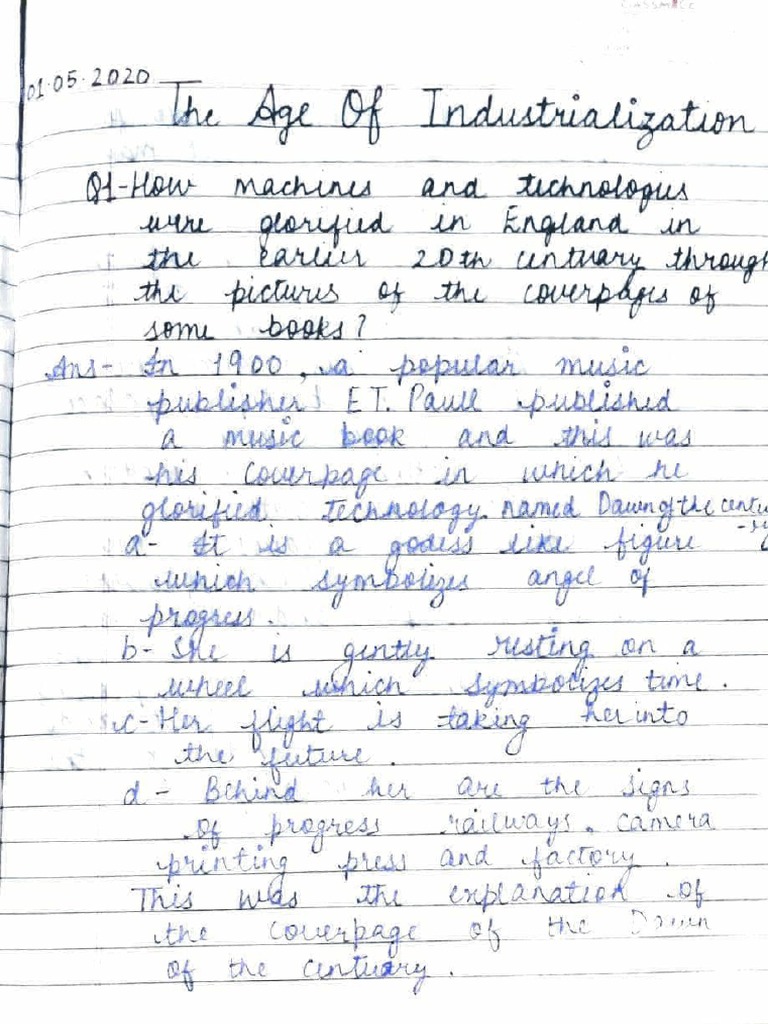 classmate
01.05.2020
The Age Of Industrialization
Q1-How machines and technologies
were glorified in England in
the earlier 20th centuary through
the pictures of the coverpages of
some books?
Ans- In 1900, a popular music
publisher E T. Paull published
a music book and this was
his coverpage in which he
glorified technology named Dawn of the centu
a- It is a godess like figure
which symbolizes angel of
progress.
b- She is gently resting on a
wheel which symbolizes time.
c- Her flight is taking her into
the future.
d- Behind her are the signs
of progress railways, camera
printing press and factory.
This was the explanation of
the coverpage of the Dawn
of the centuary.